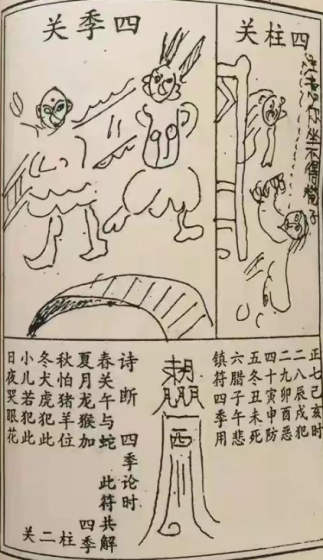 四柱关
坐不得椅子
四季关
正七巳亥时
二八辰戌犯
二九卯酉恶
四十寅申防
五冬丑未死
六腊子午悲
镇符四季用
西
诗断 四季论时
春关午与蛇 此符共解
夏月龙猴加 四季
秋怕猪羊位 柱
冬犬虎犯此 二
小儿若犯此 关
日夜哭眼花